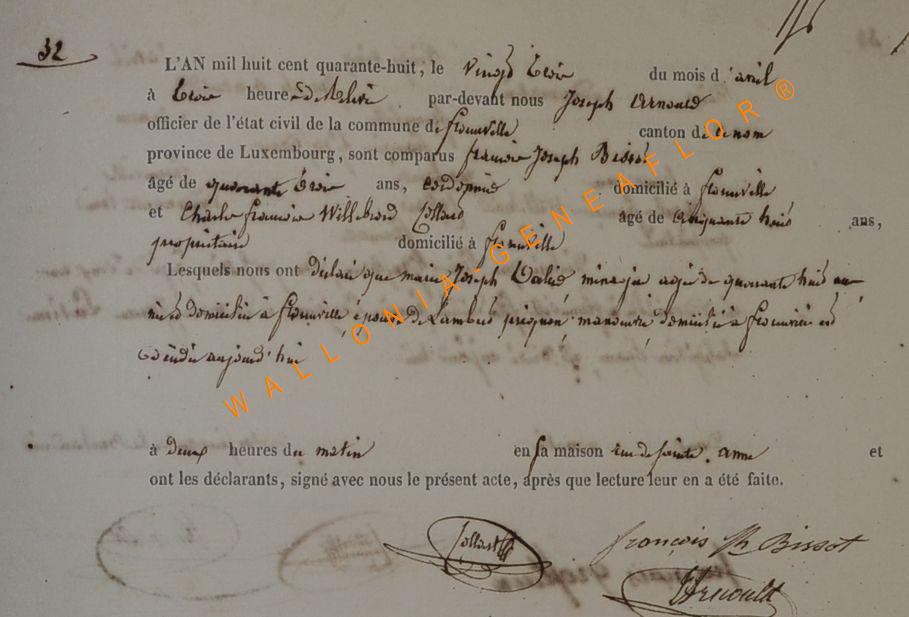 32
L'AN mil huit cent quarante-huit, le vingt trois du mois d'avril
à trois heures de Relevée par-devant nous Joseph Arnould
officier de l'état civil de la commune de florenville canton de ce nom
province de Luxembourg, sont comparus francois Joseph Bissot
âgé de quarante trois ans, cordonnier domicilié à florenville
et Charles francois Willebrord Collard âgé de cinquante huit ans,
propriétaire domicilié à florenville
Lesquels nous ont déclaré que marie Joseph menagere agée de quarante huit ans
née et domiciliée à florenville épouse de Lambert manoeuvre domicilié à florenville est
décédée aujourd'hui
à deux heures du matin en sa maison rue de sainte anne et
ont les déclarants, signé avec nous le présent acte, après que lecture leur en a été faite.
Collard françois Jh Bissot
JArnould
WALLONIA-GENEAFLOR®